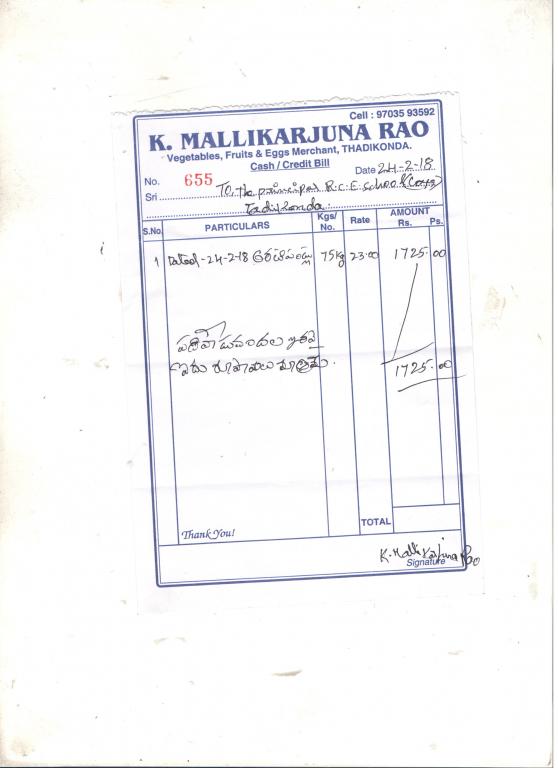 Cell : 97035 93592
K. MALLIKARJUNA RAO
Vegetables, Fruits & Eggs Merchant, THADIKONDA.
Cash / Credit Bill
No. 655 Date 24-2-18
Sri To, The principal R.C.E. school
Tadikonda.
S.No. PARTICULARS Kgs/ No. Rate AMOUNT Rs. Ps.
1 Dated-24-2-18 అరటిపండ్లు 75kg 23.00 1725.00
ఇరవై
ఐదు రూపాయలు మాత్రమే.
1725.00
TOTAL
Thank You!
K. Mallikarjuna Rao
Signature